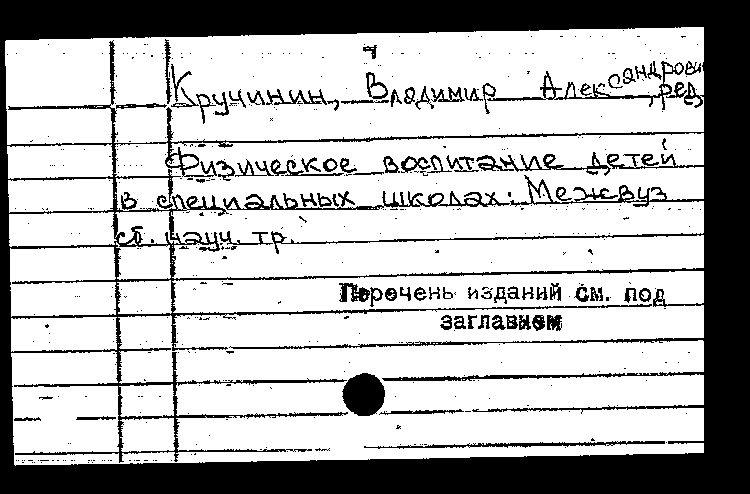 7
Кручинин, Владимир Александрович, ред.
Физическое воспитание детей
в специальных школах: Межвуз
сб. науч. тр.
Перечень изданий см. под
заглавием